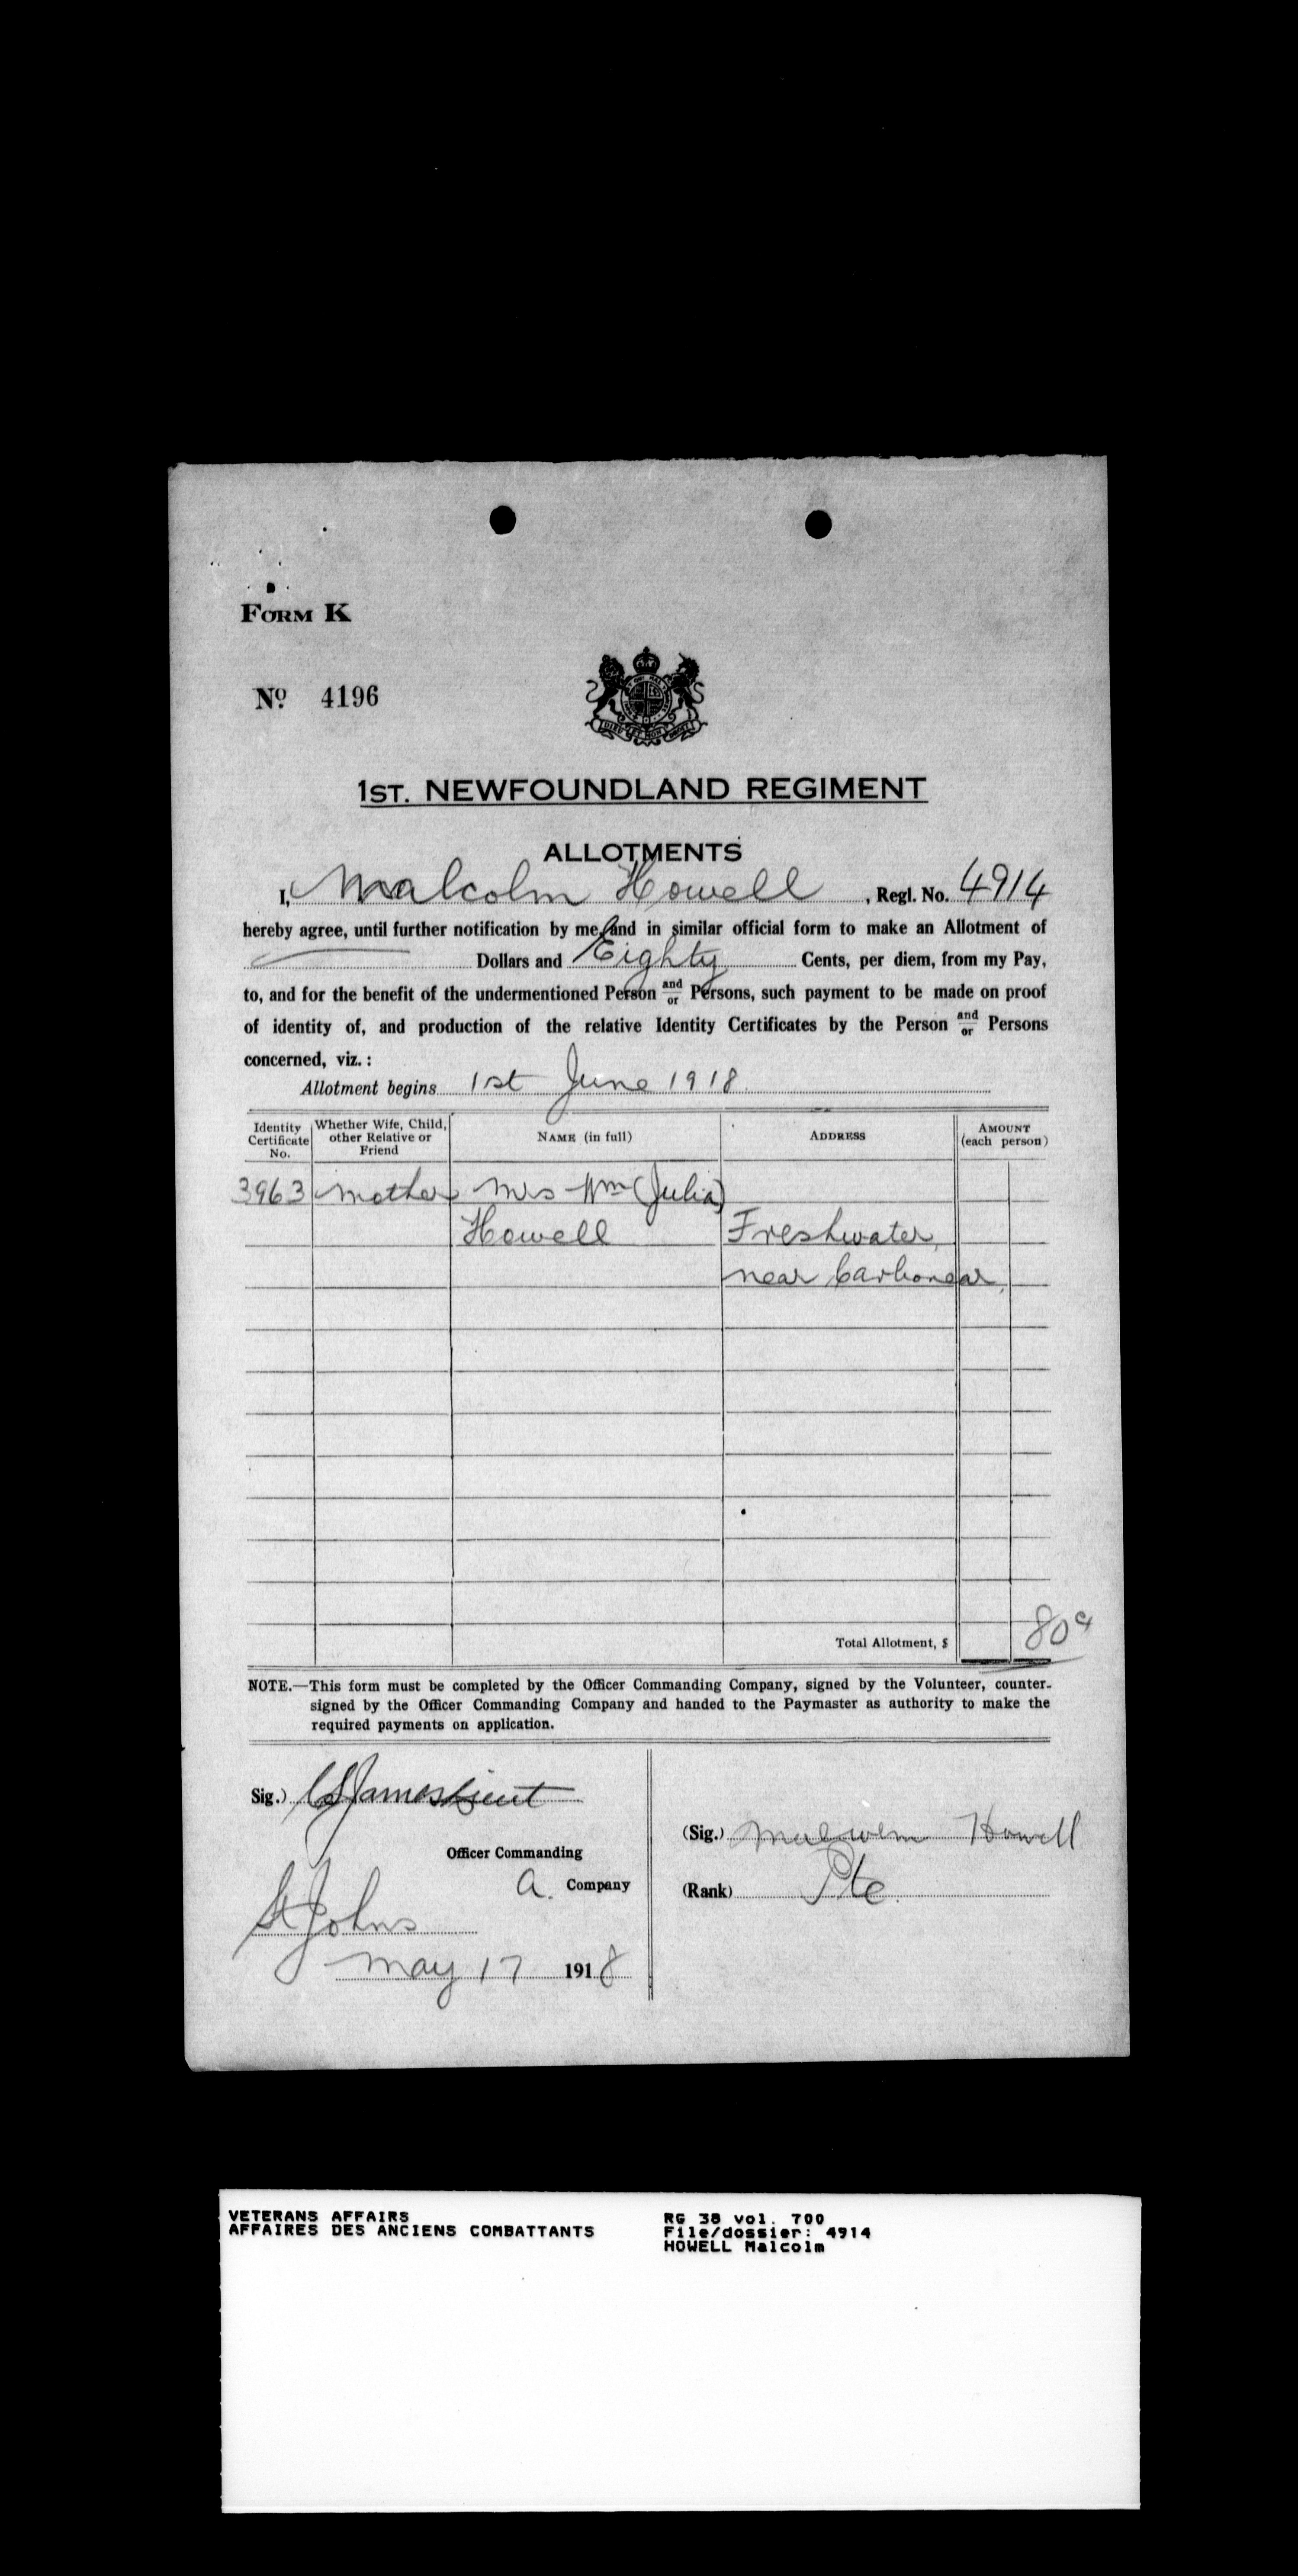 FORM K
No. 4196
1ST. NEWFOUNDLAND REGIMENT
ALLOTMENTS
I, Malcolm Howell, Regl. No. 4914
hereby agree, until further notification by me, and in similar official form to make an Allotment of
Dollars and Eighty Cents, per diem, from my Pay,
to, and for the benefit of the undermentioned Person and/or Persons, such payment to be made on proof
of identity of, and production of the relative Identity Certificates by the Person and/or Persons
concerned, viz.:
Allotment begins 1st June 1918
Identity Certificate No. Whether Wife, Child, other Relative or Friend NAME (in full) ADDRESS AMOUNT (each person)
3963 Mother Mrs Wm (Julia)
Howell Freshwater,
near Carbonear,
Total Allotment, $ 80c
NOTE.—This form must be completed by the Officer Commanding Company, signed by the Volunteer, counter-
signed by the Officer Commanding Company and handed to the Paymaster as authority to make the
required payments on application.
Sig.) James Lieut
(Sig.) Malcolm Howell
Officer Commanding
A. Company
(Rank) Pte.
St Johns
May 17 1918
VETERANS AFFAIRS RG 38 vol. 700
AFFAIRES DES ANCIENS COMBATTANTS File/dossier: 4914
HOWELL Malcolm